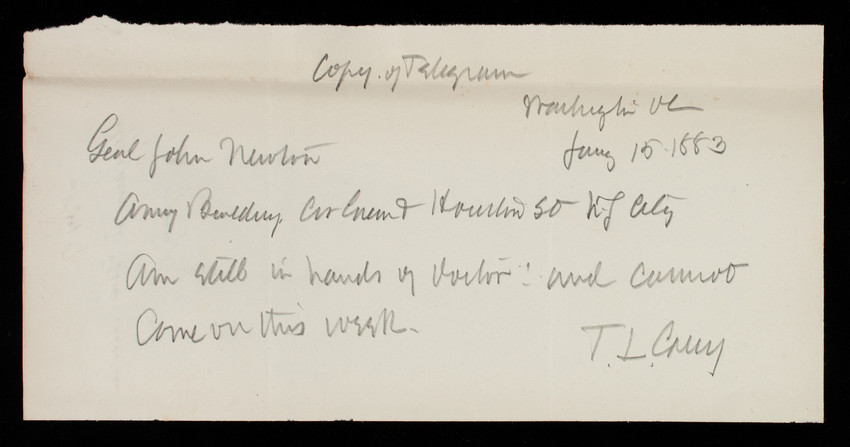 Copy of Telegram
Washington DC
Jany 15. 1883
Genl John Newton
Army Building, Cor Greene & Houston St N.Y City
Am still in hands of doctor: and cannot
Come on this week.
T. L. Casey